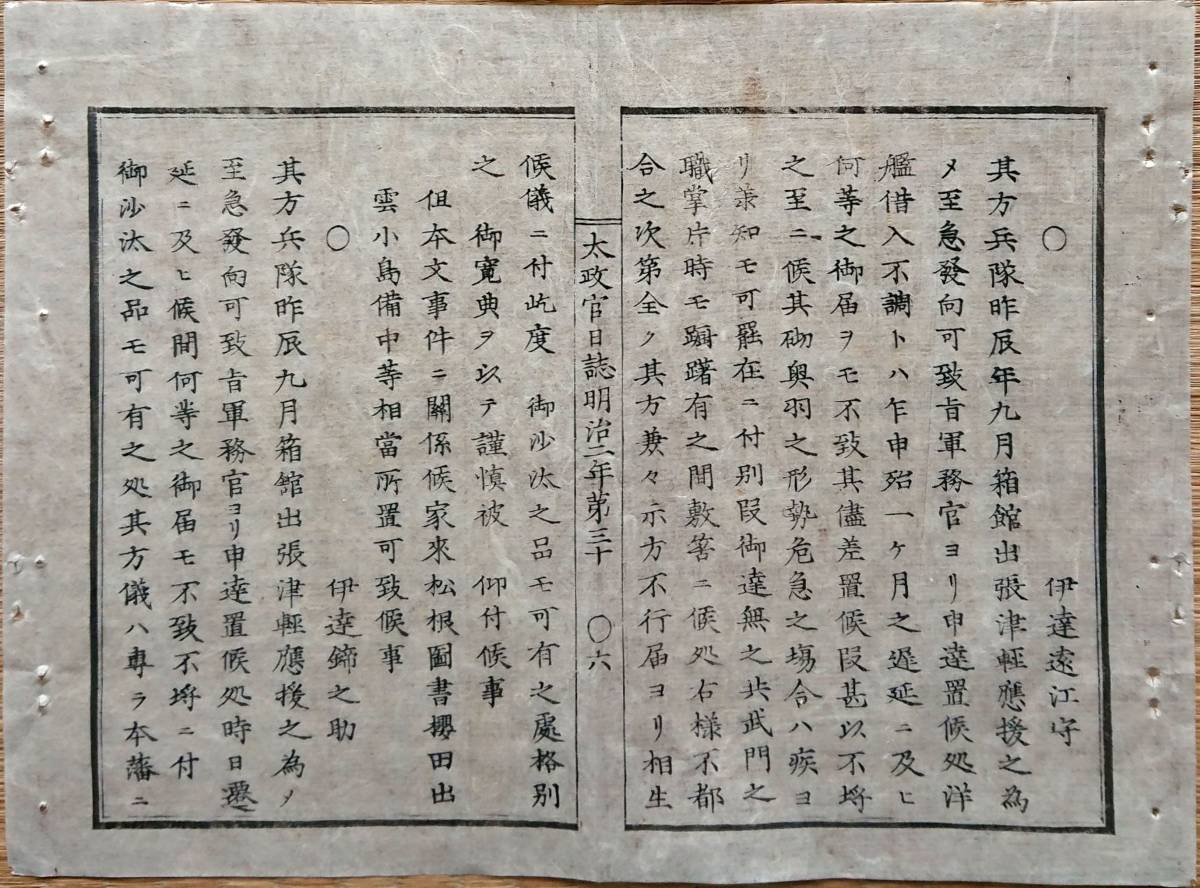 〇
伊達遠江守
其方兵隊昨辰年九月箱館出張津輕應援之為
メ至急發向可致旨軍務官ヨリ申達置候処洋
艦借入不調トハ乍申殆一ヶ月之遅延ニ及ヒ
何等之御届ヲモ不致其儘差置候段甚以不埒
之至ニ候其砌奥羽之形勢危急之場合ハ疾ヨ
リ兼知モ可罷在ニ付別段御達無之共武門之
職掌片時モ躊躇有之間敷筈ニ候処右様不都
合之次第全ク其方兼々示方不行届ヨリ相生
太政官日誌明治二年第三十 〇六
候儀ニ付此度 御沙汰之品モ可有之處格別
之 御寛典ヲ以テ謹慎被 仰付候事
但本文事件ニ關係候家來松根圖書櫻田出
雲小島備中等相當所置可致候事
〇
伊達鍗之助
其方兵隊昨辰九月箱館出張津輕應援之為メ
至急發向可致旨軍務官ヨリ申達置候処時日遷
延ニ及ヒ候間何等之御届モ不致不埒ニ付
御沙汰之品モ可有之処其方儀ハ専ラ本藩ニ